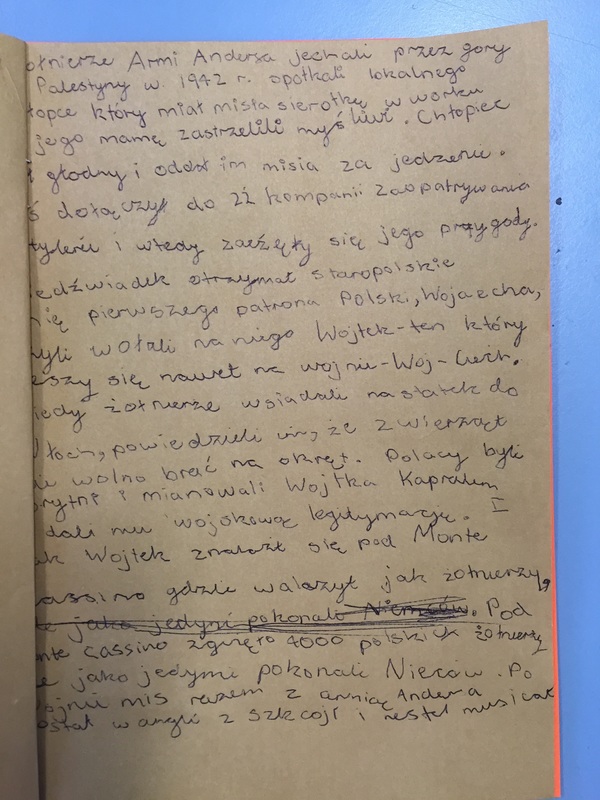 ołnierze Armi Andersa jechali przez gory
Palestyny w 1942 r. spotkali lokalnego
łopce który miał misia sierotkę w worku
jego mamę zastrzelili myśliwi. Chłopiec
głodny i oddał im misia za jedzenie.
ś dołączył do 22 kompanii Zaopatrywania
tylerii i wtedy zaczęły się jego przygody.
edźwiadek otrzymał staropolskie
ię pierwszego patrona Polski, Wojciecha,
yli wołali na niego Wojtek-ten który
eszy się nawet na wojnie-Woj-Ciech.
iedy żołnierze wsiadali na statek do
łoch, powiedzieli im, że zwierząt
ie wolno brać na okręt. Polacy byli
prytni i mianowali Wojtka Kapralem
dali mu wojskową legitymację. I
ak Wojtek znalazł się pod Monte
assino gdzie walczył jak żołnierz,
e jako jedyni pokonali Niemców. Pod
nte Cassino zginęło 4000 polskich żołnierzy
e jako jedymi pokonali Niecow. Po
ojnie mis razem z armią Andersa
ostał w angli z szkcoji i